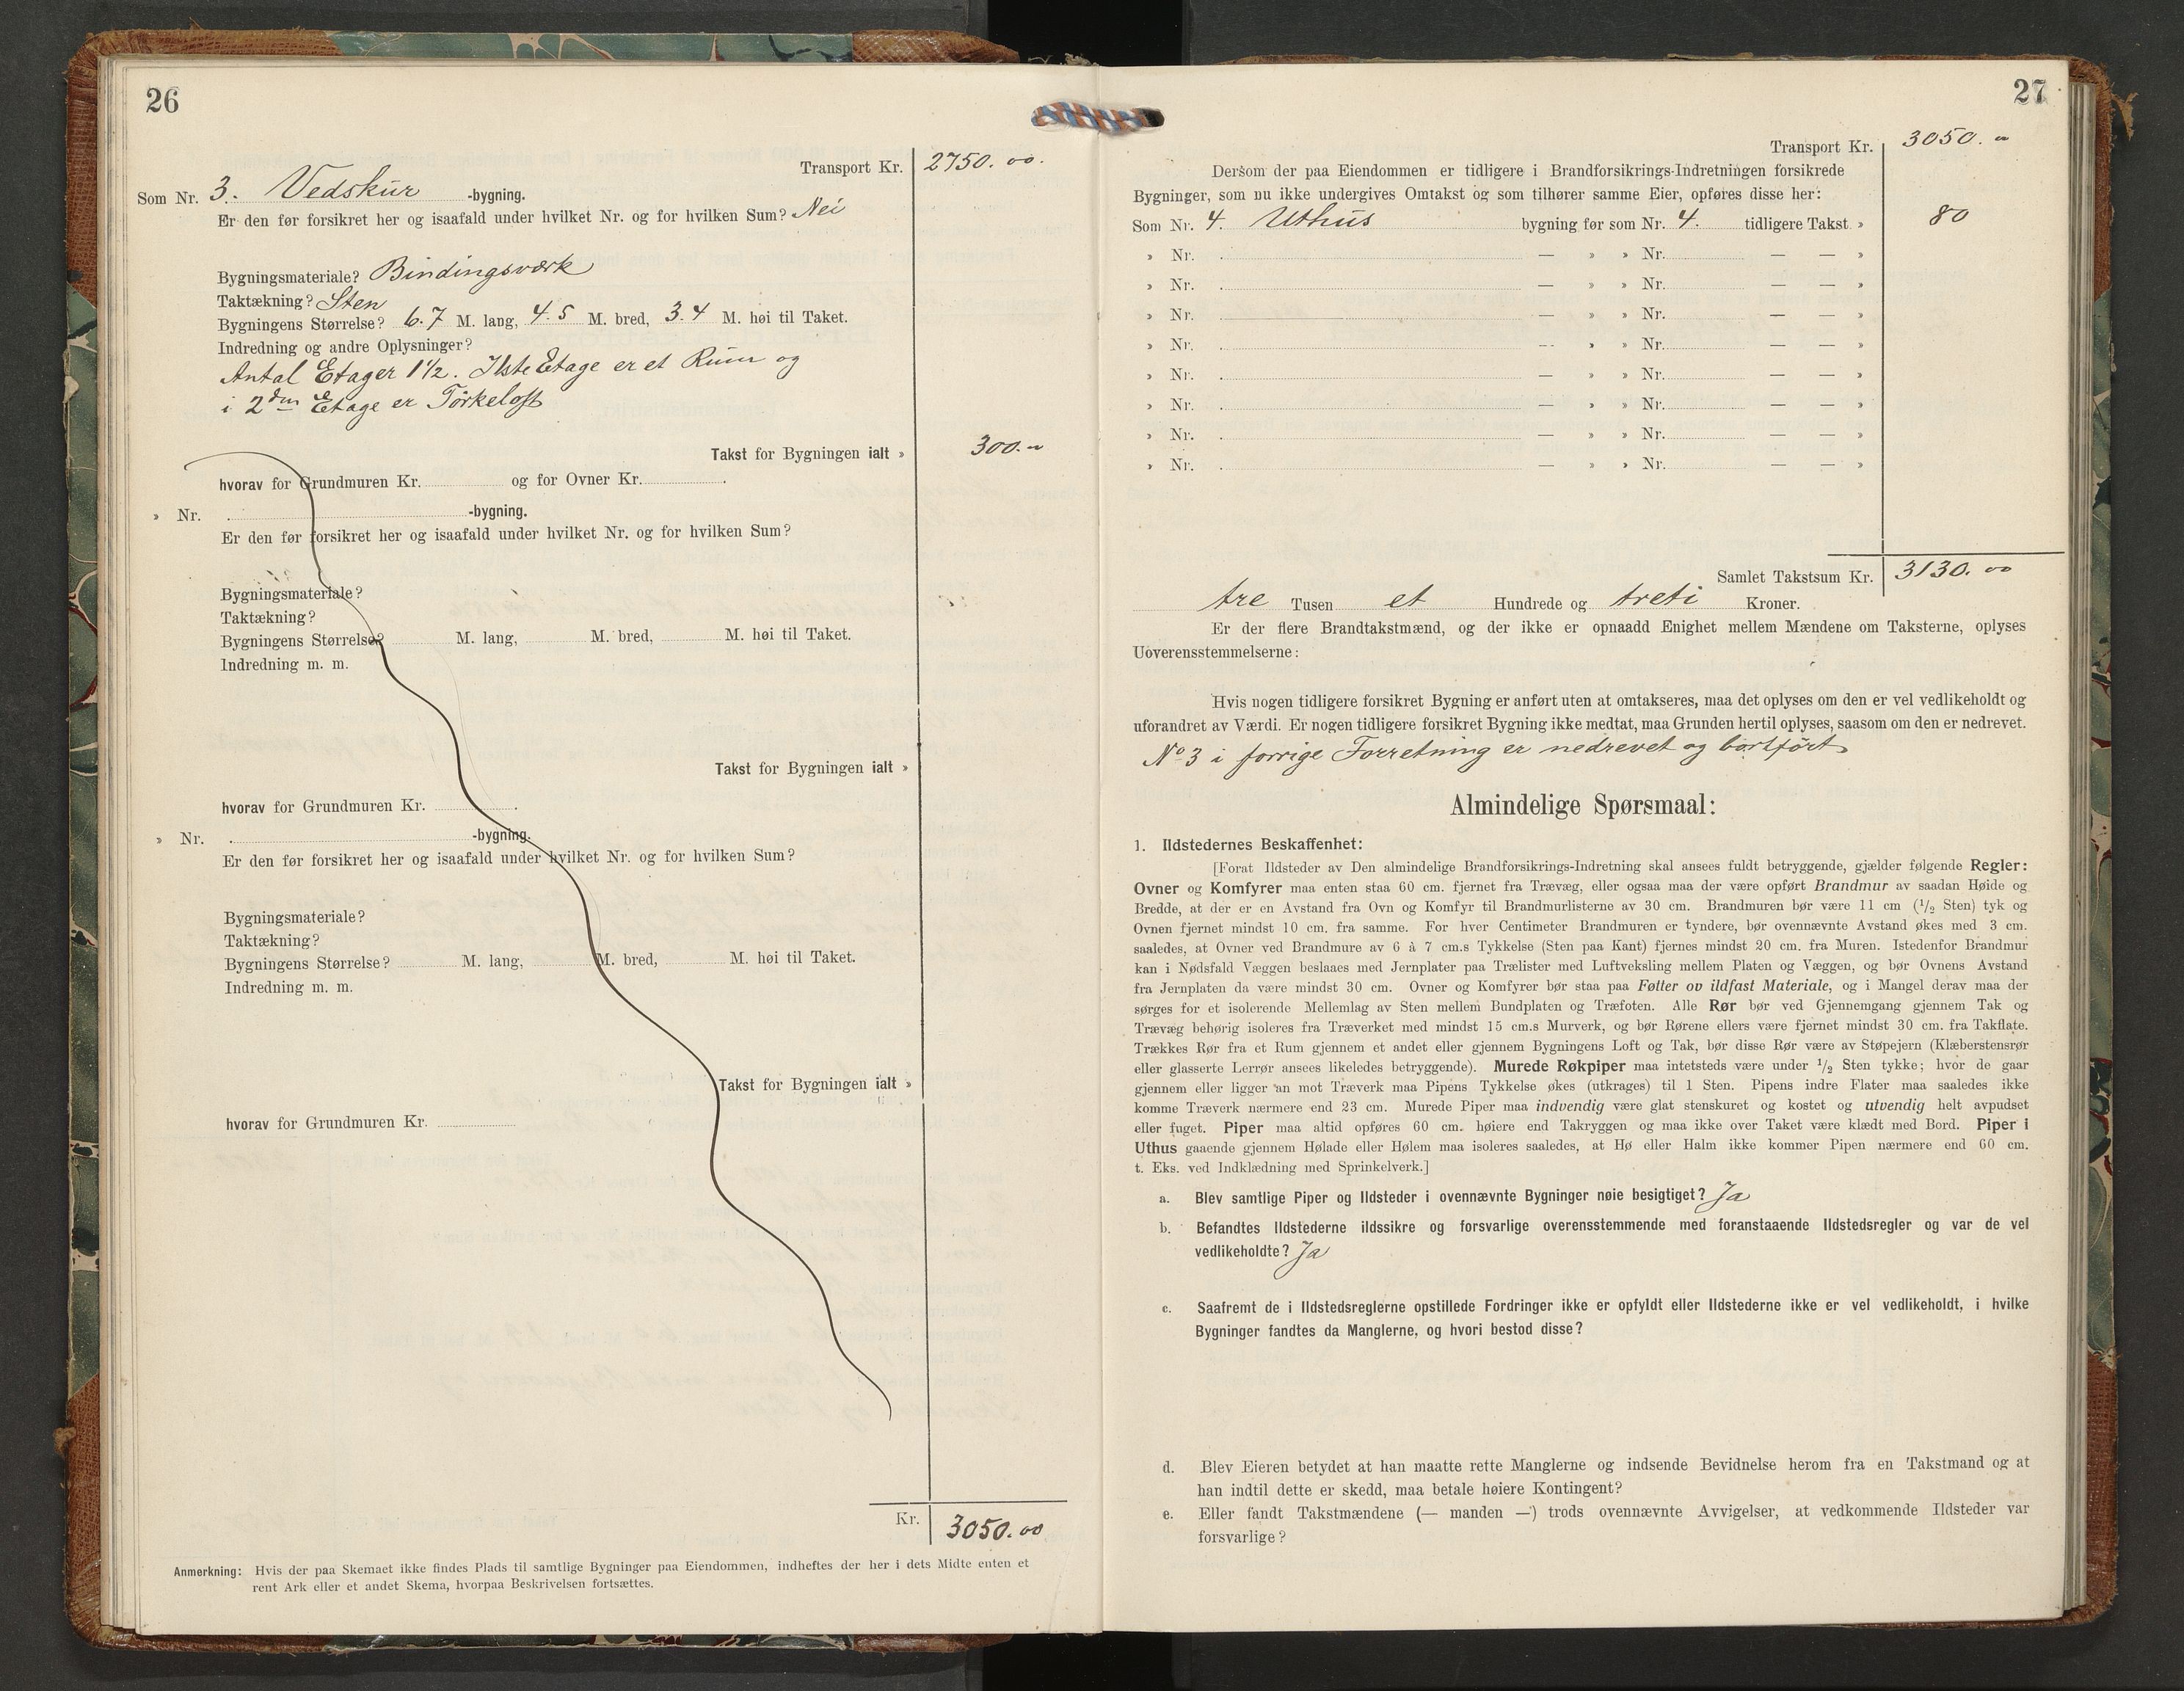 26
Transport Kr. 2750.00.
Som Nr. 3. Vedskur -bygning.
Er den før forsikret her og isaafald under hvilket Nr. og for hvilken Sum? Nei
Bygningsmateriale? Bindingsværk
Taktækning? Sten
Bygningens Størrelse? 6.7 M. lang, 4.5 M. bred, 3.4 M. høi til Taket.
Indredning og andre Oplysninger?
Antal Etager 1 1/2. I Iste Etage er et Rum og
i 2den Etage er Törkeloft
Takst for Bygningen ialt » 300.00
hvorav for Grundmuren Kr. og for Ovner Kr. .
» Nr. -bygning.
Er den før forsikret her og isaafald under hvilket Nr. og for hvilken Sum?
Bygningsmateriale?
Taktækning?
Bygningens Størrelse? M. lang, M. bred, M. høi til Taket.
Indredning m. m.
Takst for Bygningen ialt »
hvorav for Grundmuren Kr. .
» Nr. -bygning.
Er den før forsikret her og isaafald under hvilket Nr. og for hvilken Sum?
Bygningsmateriale?
Taktækning?
Bygningens Størrelse? M. lang, M. bred, M. høi til Taket.
Indredning m. m.
Takst for Bygningen ialt »
hvorav for Grundmuren Kr.
Kr. 3050.00
Anmerkning: Hvis der paa Skemaet ikke findes Plads til samtlige Bygninger paa Eiendommen, indheftes der her i dets Midte enten et
rent Ark eller et andet Skema, hvorpaa Beskrivelsen fortsættes.
27
Transport Kr. 3050.00
Dersom der paa Eiendommen er tidligere i Brandforsikrings-Indretningen forsikrede
Bygninger, som nu ikke undergives Omtakst og som tilhører samme Eier, opføres disse her:
Som Nr. 4. Uthus bygning før som Nr. 4. tidligere Takst » 80
» Nr. — » » Nr. — — »
» Nr. — » » Nr. — — »
» Nr. — » » Nr. — — »
» Nr. — » » Nr. — — »
» Nr. — » » Nr. — — »
» Nr. — » » Nr. — — »
» Nr. — » » Nr. — — »
» Nr. — » » Nr. — — »
Samlet Takstsum Kr. 3130.00
tre Tusen et Hundrede og treti Kroner.
Er der flere Brandtakstmænd, og der ikke er opnaadd Enighet mellem Mændene om Taksterne, oplyses
Uoverensstemmelserne:
Hvis nogen tidligere forsikret Bygning er anført uten at omtakseres, maa det oplyses om den er vel vedlikeholdt og
uforandret av Værdi. Er nogen tidligere forsikret Bygning ikke medtat, maa Grunden hertil oplyses, saasom om den er nedrevet.
No 3 i forrige Forretning er nedrevet og bortført
Almindelige Spørsmaal:
1. Ildstedernes Beskaffenhet:
[Forat Ildsteder av Den almindelige Brandforsikrings-Indretning skal ansees fuldt betryggende, gjælder følgende Regler:
Ovner og Komfyrer maa enten staa 60 cm. fjernet fra Trævæg, eller ogsaa maa der være opført Brandmur av saadan Høide og
Bredde, at der er en Avstand fra Ovn og Komfyr til Brandmurlisterne av 30 cm. Brandmuren bør være 11 cm (1/2 Sten) tyk og
Ovnen fjernet mindst 10 cm. fra samme. For hver Centimeter Brandmuren er tyndere, bør ovennævnte Avstand økes med 3 cm.
saaledes, at Ovner ved Brandmure av 6 à 7 cm.s Tykkelse (Sten paa Kant) fjernes mindst 20 cm. fra Muren. Istedenfor Brandmur
kan i Nødsfald Væggen beslaaes med Jernplater paa Trælister med Luftveksling mellem Platen og Væggen, og bør Ovnens Avstand
fra Jernplaten da være mindst 30 cm. Ovner og Komfyrer bør staa paa Føtter ov ildfast Materiale, og i Mangel derav maa der
sørges for et isolerende Mellemlag av Sten mellem Bundplaten og Træfoten. Alle Rør bør ved Gjennemgang gjennem Tak og
Trævæg behørig isoleres fra Træverket med mindst 15 cm.s Murverk, og bør Rørene ellers være fjernet mindst 30 cm. fra Takflate.
Trækkes Rør fra et Rum gjennem et andet eller gjennem Bygningens Loft og Tak, bør disse Rør være av Støpejern (Klæberstensrør
eller glasserte Lerrør ansees likeledes betryggende). Murede Røkpiper maa intetsteds være under 1/2 Sten tykke; hvor de gaar
gjennem eller ligger an mot Træverk maa Pipens Tykkelse økes (utkrages) til 1 Sten. Pipens indre Flater maa saaledes ikke
komme Træverk nærmere end 23 cm. Murede Piper maa indvendig være glat stenskuret og kostet og utvendig helt avpudset
eller fuget. Piper maa altid opføres 60 cm. høiere end Takryggen og maa ikke over Taket være klædt med Bord. Piper i
Uthus gaaende gjennem Hølade eller Hølem maa isoleres saaledes, at Hø eller Halm ikke kommer Pipen nærmere end 60 cm.
t. Eks. ved Indklædning med Sprinkelverk.]
a. Blev samtlige Piper og Ildsteder i ovennævnte Bygninger nøie besigtiget? Ja
b. Befandtes Ildstederne ildssikre og forsvarlige overensstemmende med foranstaaende Ildstedsregler og var de vel
vedlikeholdte? Ja
c. Saafremt de i Ildstedsreglerne opstillede Fordringer ikke er opfyldt eller Ildstederne ikke er vel vedlikeholdt, i hvilke
Bygninger fandtes da Manglerne, og hvori bestod disse?
d. Blev Eieren betydet at han maatte rette Manglerne og indsende Bevidnelse herom fra en Takstmand og at
han indtil dette er skedd, maa betale høiere Kontingent?
e. Eller fandt Takstmændene (— manden —) trods ovennævnte Avvigelser, at vedkommende Ildsteder var
forsvarlige?